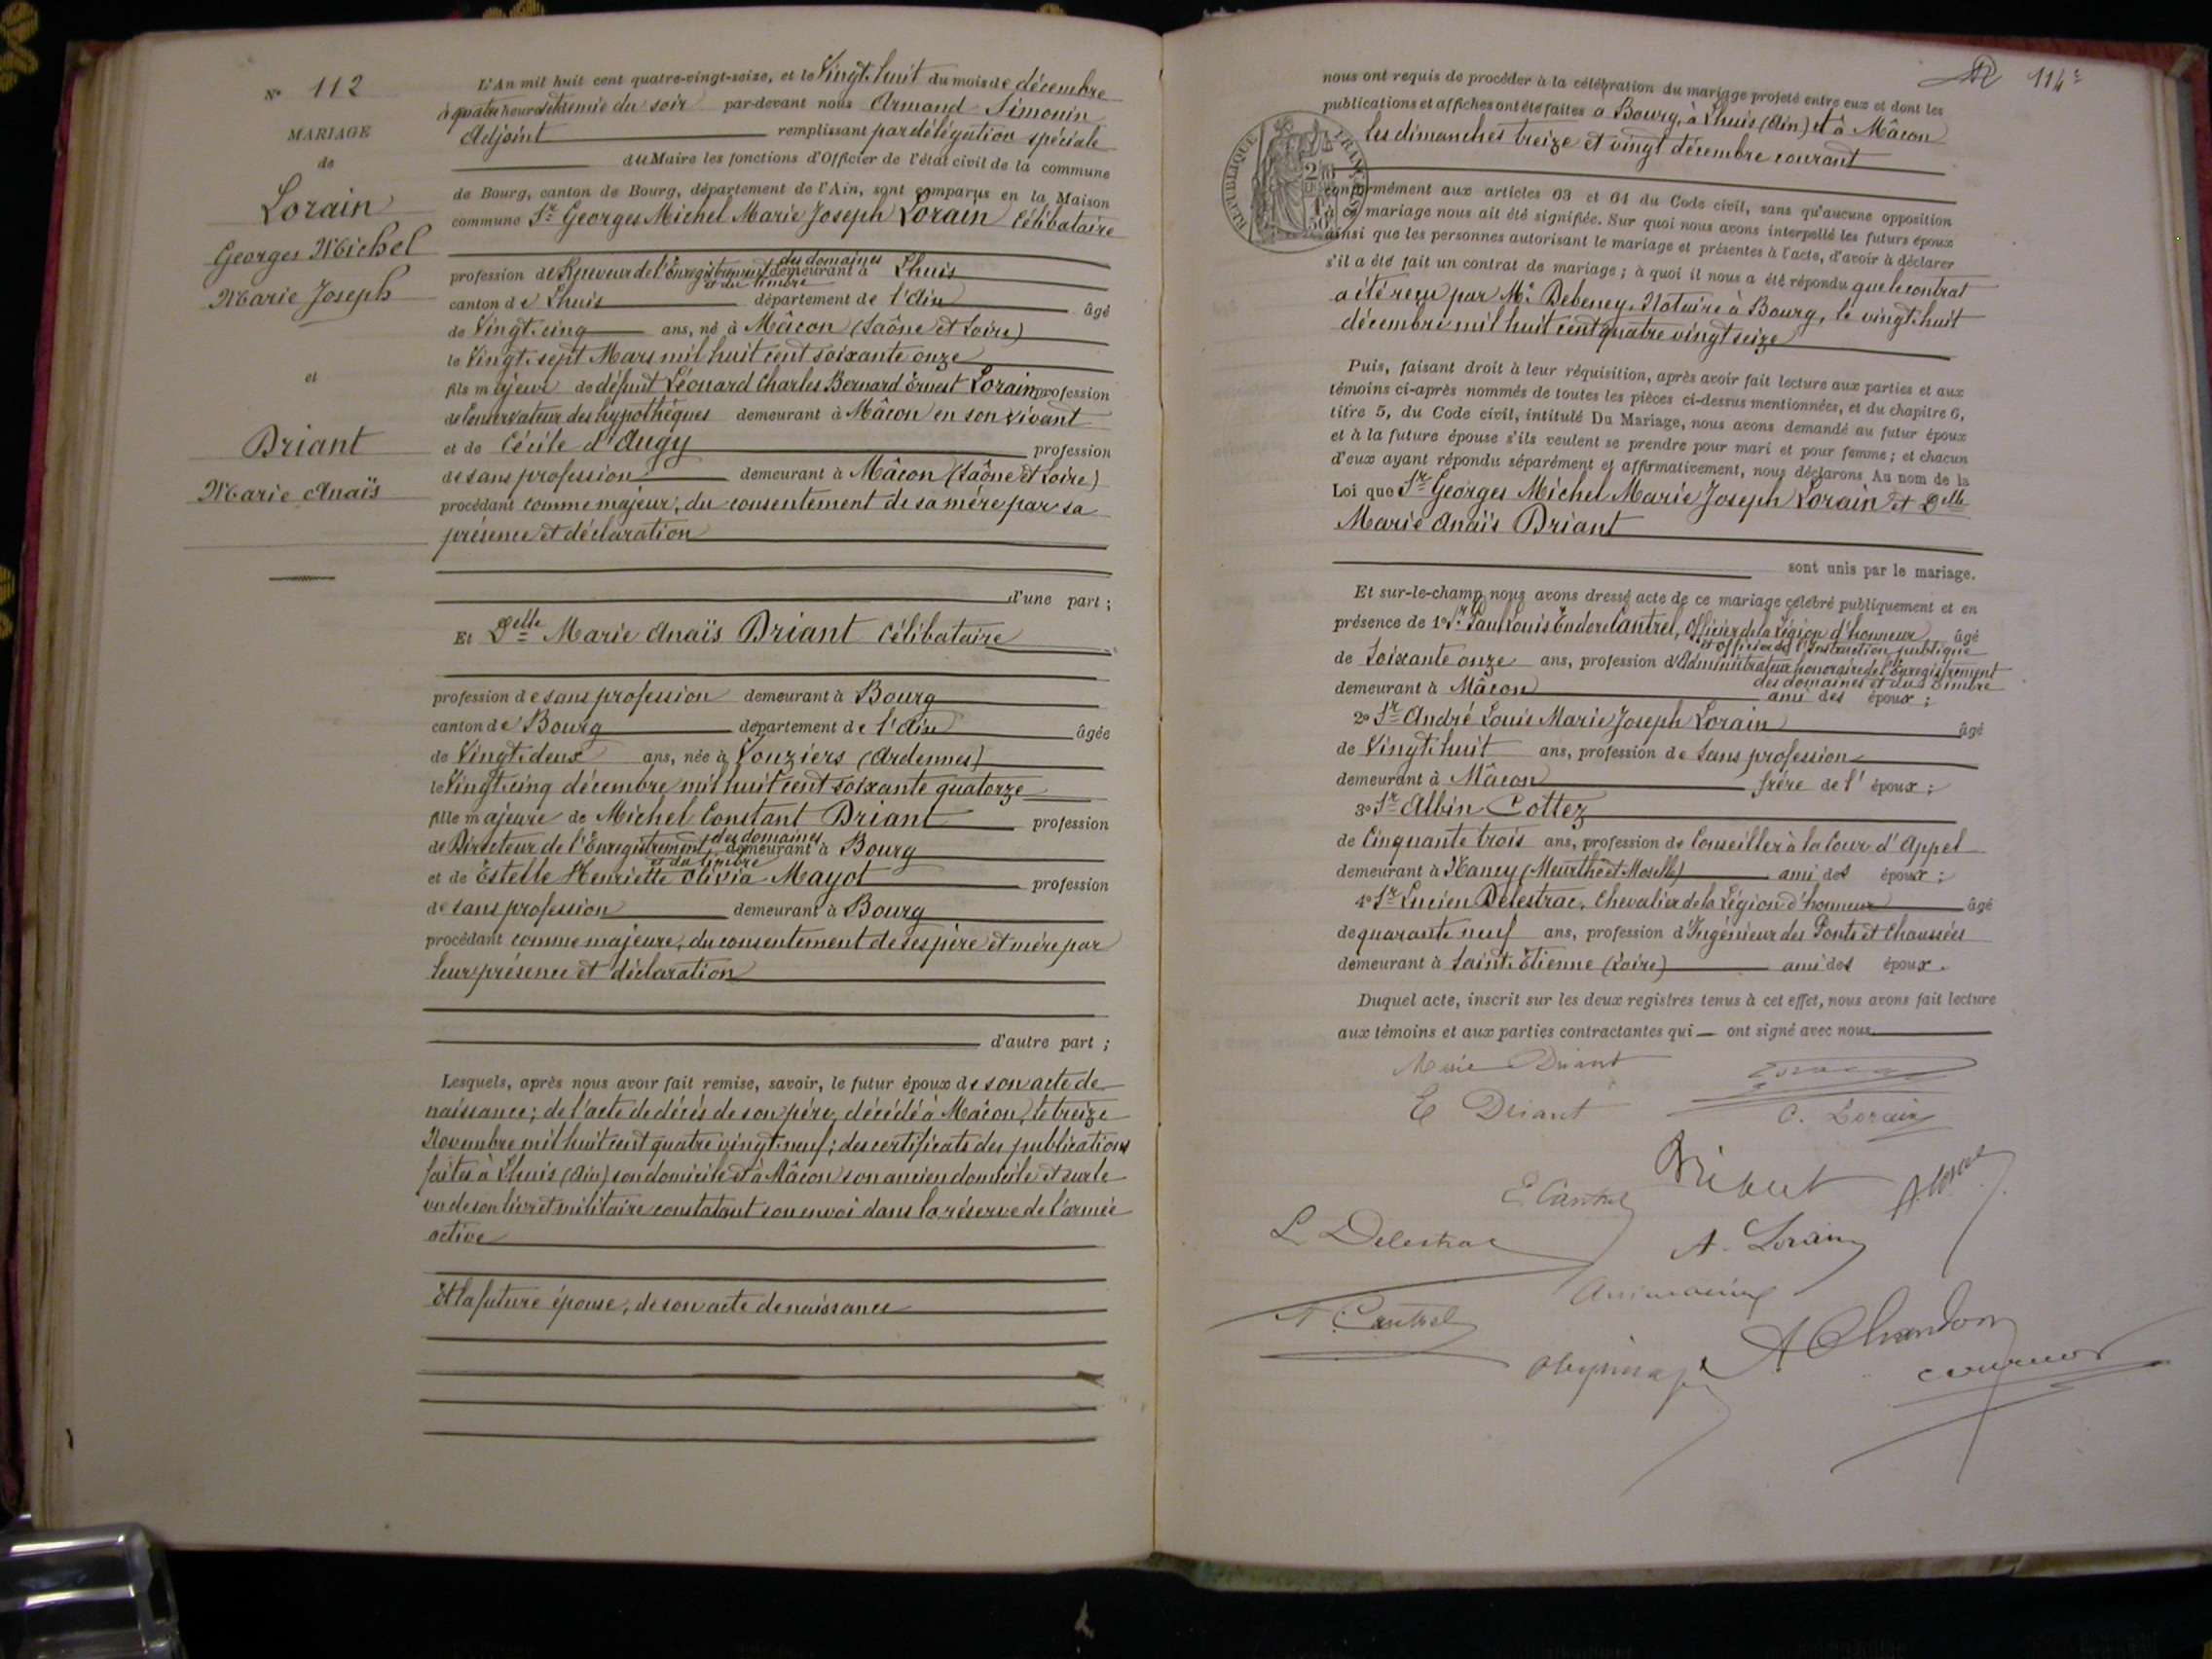 N° 112
MARIAGE
de
Lorain
Georges Michel
Marie Joseph
et
Briant
Marie Anaïs
L'An mil huit cent quatre-vingt-seize, et le Vingt-huit du mois de décembre
à quatre heures et demie du soir par-devant nous Armand Simonin
Adjoint remplissant par délégation spéciale
du Maire les fonctions d'Officier de l'état civil de la commune
de Bourg, canton de Bourg, département de l'Ain, sont comparus en la Maison
commune Sr Georges Michel Marie Joseph Lorain Célibataire
des domaines
profession de Receveur de l'Enregistrement demeurant à Lhuis
et du timbre
canton de Lhuis département de l'Ain âgé
de Vingt-cinq ans, né à Mâcon (Saône et Loire)
le Vingt-sept Mars mil huit cent soixante onze
fils majeur de défunt Léonard Charles Bernard Ernest Lorain profession
de Conservateur des hypothèques demeurant à Mâcon en son vivant
et de Cécile d'Augy profession
de sans profession demeurant à Mâcon (Saône et Loire)
procédant comme majeur, du consentement de sa mère par sa
présence et déclaration
d'une part ;
Et Delle Marie Anaïs Briant Célibataire
profession de sans profession demeurant à Bourg
canton de Bourg département de l'Ain âgée
de Vingt-deux ans, née à Vouziers (Ardennes)
le Vingt-cinq décembre mil huit cent soixante quatorze
fille majeure de Michel Constant Briant profession
des domaines
de Directeur de l'Enregistrement, demeurant à Bourg
et du timbre
et de Estelle Henriette Olivia Mayot profession
de sans profession demeurant à Bourg
procédant comme majeure, du consentement de ses père et mère par
leur présence et déclaration
d'autre part ;
Lesquels, après nous avoir fait remise, savoir, le futur époux de son acte de
naissance; de l'acte de décès de son père, décédé à Mâcon, le treize
Novembre mil huit cent quatre vingt-neuf; des certificats des publications
faites à Lhuis (Ain) son domicile et à Mâcon son ancien domicile et sur le
vu de son livret militaire constatant son envoi dans la réserve de l'armée
active
Et la future épouse, de son acte de naissance
114e
nous ont requis de procéder à la célébration du mariage projeté entre eux et dont les
publications et affiches ont été faites à Bourg, à Lhuis (Ain) et à Mâcon
les dimanches treize et vingt décembre courant
RÉPUBLIQUE FRANÇAISE
conformément aux articles 63 et 64 du Code civil, sans qu'aucune opposition
à ce mariage nous ait été signifiée. Sur quoi nous avons interpellé les futurs époux
ainsi que les personnes autorisant le mariage et présentes à l'acte, d'avoir à déclarer
s'il a été fait un contrat de mariage ; à quoi il nous a été répondu que le contrat
a été reçu par Me Debeney, Notaire à Bourg, le vingt-huit
décembre mil huit cent quatre vingt seize
Puis, faisant droit à leur réquisition, après avoir fait lecture aux parties et aux
témoins ci-après nommés de toutes les pièces ci-dessus mentionnées, et du chapitre 6,
titre 5, du Code civil, intitulé Du Mariage, nous avons demandé au futur époux
et à la future épouse s'ils veulent se prendre pour mari et pour femme ; et chacun
d'eux ayant répondu séparément et affirmativement, nous déclarons Au nom de la
Loi que Sr Georges Michel Marie Joseph Lorain et Delle
Marie Anaïs Briant
sont unis par le mariage.
Et sur-le-champ nous avons dressé acte de ce mariage célébré publiquement et en
présence de 1° Sr Paul Louis Cantrel, Officier de la Légion d'honneur âgé
et officier de l'Instruction publique
de Soixante onze ans, profession d'Administrateur honoraire de l'Enregistrement
des domaines et du timbre
demeurant à Mâcon ami des époux ;
2° Sr André Louis Marie Joseph Lorain âgé
de Vingt-huit ans, profession de sans profession
demeurant à Mâcon frère de l'époux ;
3° Sr Albin Cottez
de Cinquante trois ans, profession de Conseiller à la Cour d'Appel
demeurant à Nancy (Meurthe et Moselle) ami des époux ;
4° Sr Lucien Delestrac, Chevalier de la Légion d'honneur âgé
de quarante neuf ans, profession d'Ingénieur des Ponts et Chaussées
demeurant à Saint-Etienne (Loire) ami des époux.
Duquel acte, inscrit sur les deux registres tenus à cet effet, nous avons fait lecture
aux témoins et aux parties contractantes qui ont signé avec nous
Marie Briant
E Briant
C. Lorain
E. Cantrel
L Delestrac
A. Lorain
Cantrel
A Chandon